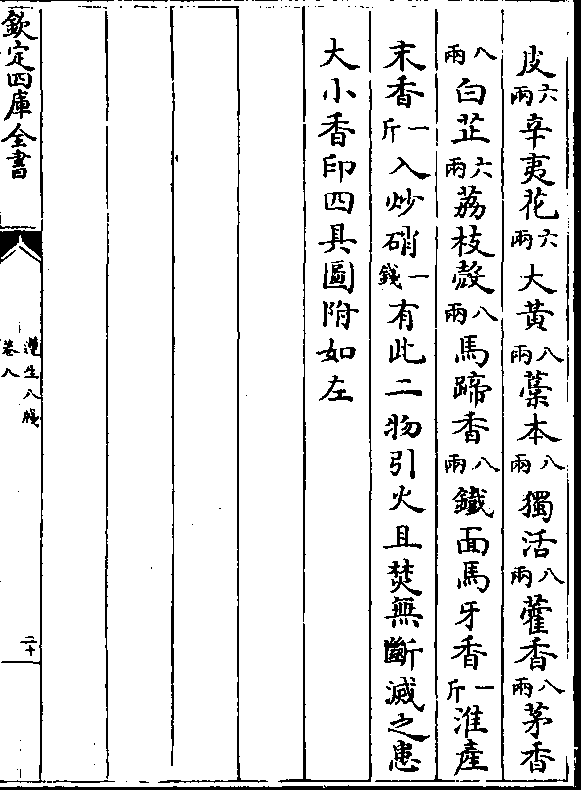 皮六兩辛夷花六兩大黄八兩藁本八兩獨活八兩藿香八兩茅香
八兩白芷六兩荔枝殻八兩馬蹄香八兩鐵面馬牙香一斤淮産
末香一斤入炒硝一錢有此二物引火且焚無斷滅之患
大小香印四具圖附如左
欽定四庫全書
遵生八牋
卷八
二十